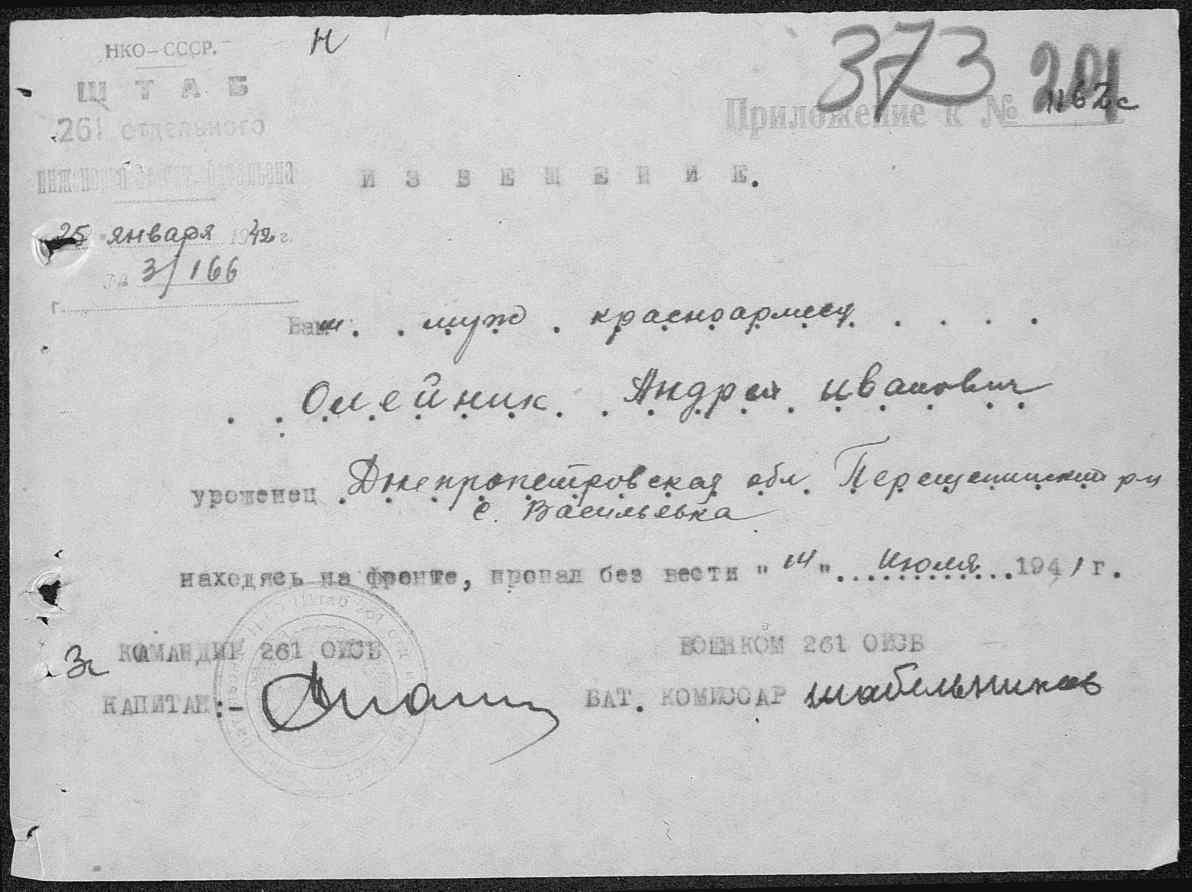 НКО-СССР.
Н
373
ШТАБ
261 отдельного
Приложение к № 1167с
201
ИЗВЕЩЕНИЕ.
25 января 1942 г.
№ 3/166
г.
Ваш муж красноармеец
Олейник Андрей Иванович
уроженец Днепропетровская обл. Перещепинский р-н
с. Васильевка
находясь на фронте, пропал без вести "14" Июля 1941 г.
Зс КОМАНДИР 261 ОИСБ
ВОЕНКОМ 261 ОИСБ
КАПИТАН:-
БАТ. КОМИССАР Шабельников